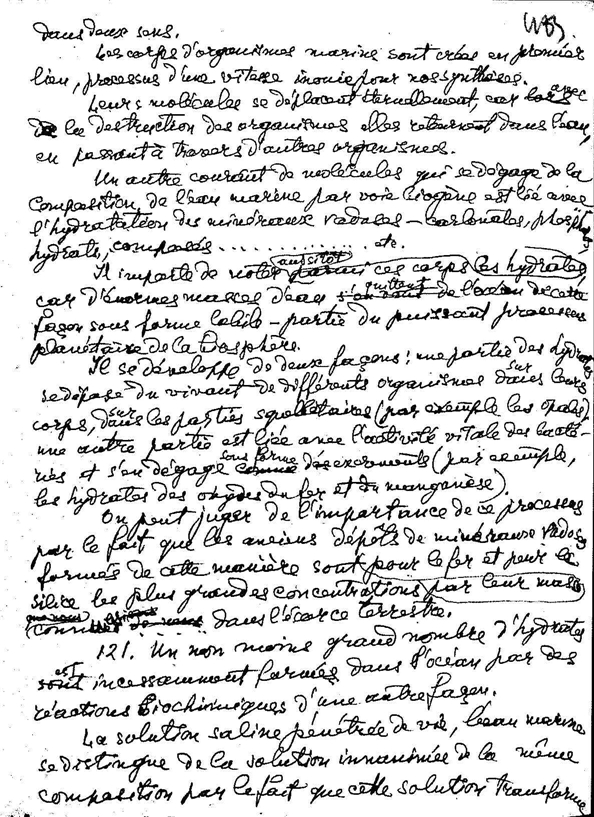 dans deux sens.
Les corps d'organismes marins sont créés en premier
lieu, processus d'une vitesse inouïe pour nos synthèses.
Leurs molécules se déplacent éternellement, car avec
la destruction des organismes elles retournent dans l'eau,
en passant à travers d'autres organismes.
Un autre courant de molécules qui se dégage de la
composition de l'eau marine par voie biogène est liée avec
l'hydratation des minéraux vadoses – carbonates, phosphates,
hydrats, composés ............ etc.
Il importe de noter aussitôt parmi ces corps les hydrates,
car d'énormes masses d'eau quittent de l'océan de cette
façon sous forme labile – partie du puissant processus
planétaire de la biosphère.
Il se développe de deux façons: une partie des hydrates
se dépose du vivant de différents organismes dans sur leurs
corps, dans sur les parties squelettaires (par exemple les opales)
une autre partie est liée avec l'activité vitale des bacté-
ries et s'en dégage sous forme comme des excréments (par exemple,
les hydrates des oxydes du fer et du manganèse).
On peut juger de l'importance de ce processus
par le fait que les anciens dépôts de minéraux vadoses
formés de cette manière sont pour le fer et pour le
silice les plus grandes concentrations par leur masse
connues dans l'écorce terrestre.
121. Un non moins grand nombre d'hydrates
sont est incessamment formés dans l'océan par des
réactions biochimiques d'une autre façon.
La solution saline pénétrée de vie, l'eau marine
se distingue de la solution inanimée de la même
composition par le fait que cette solution transforme